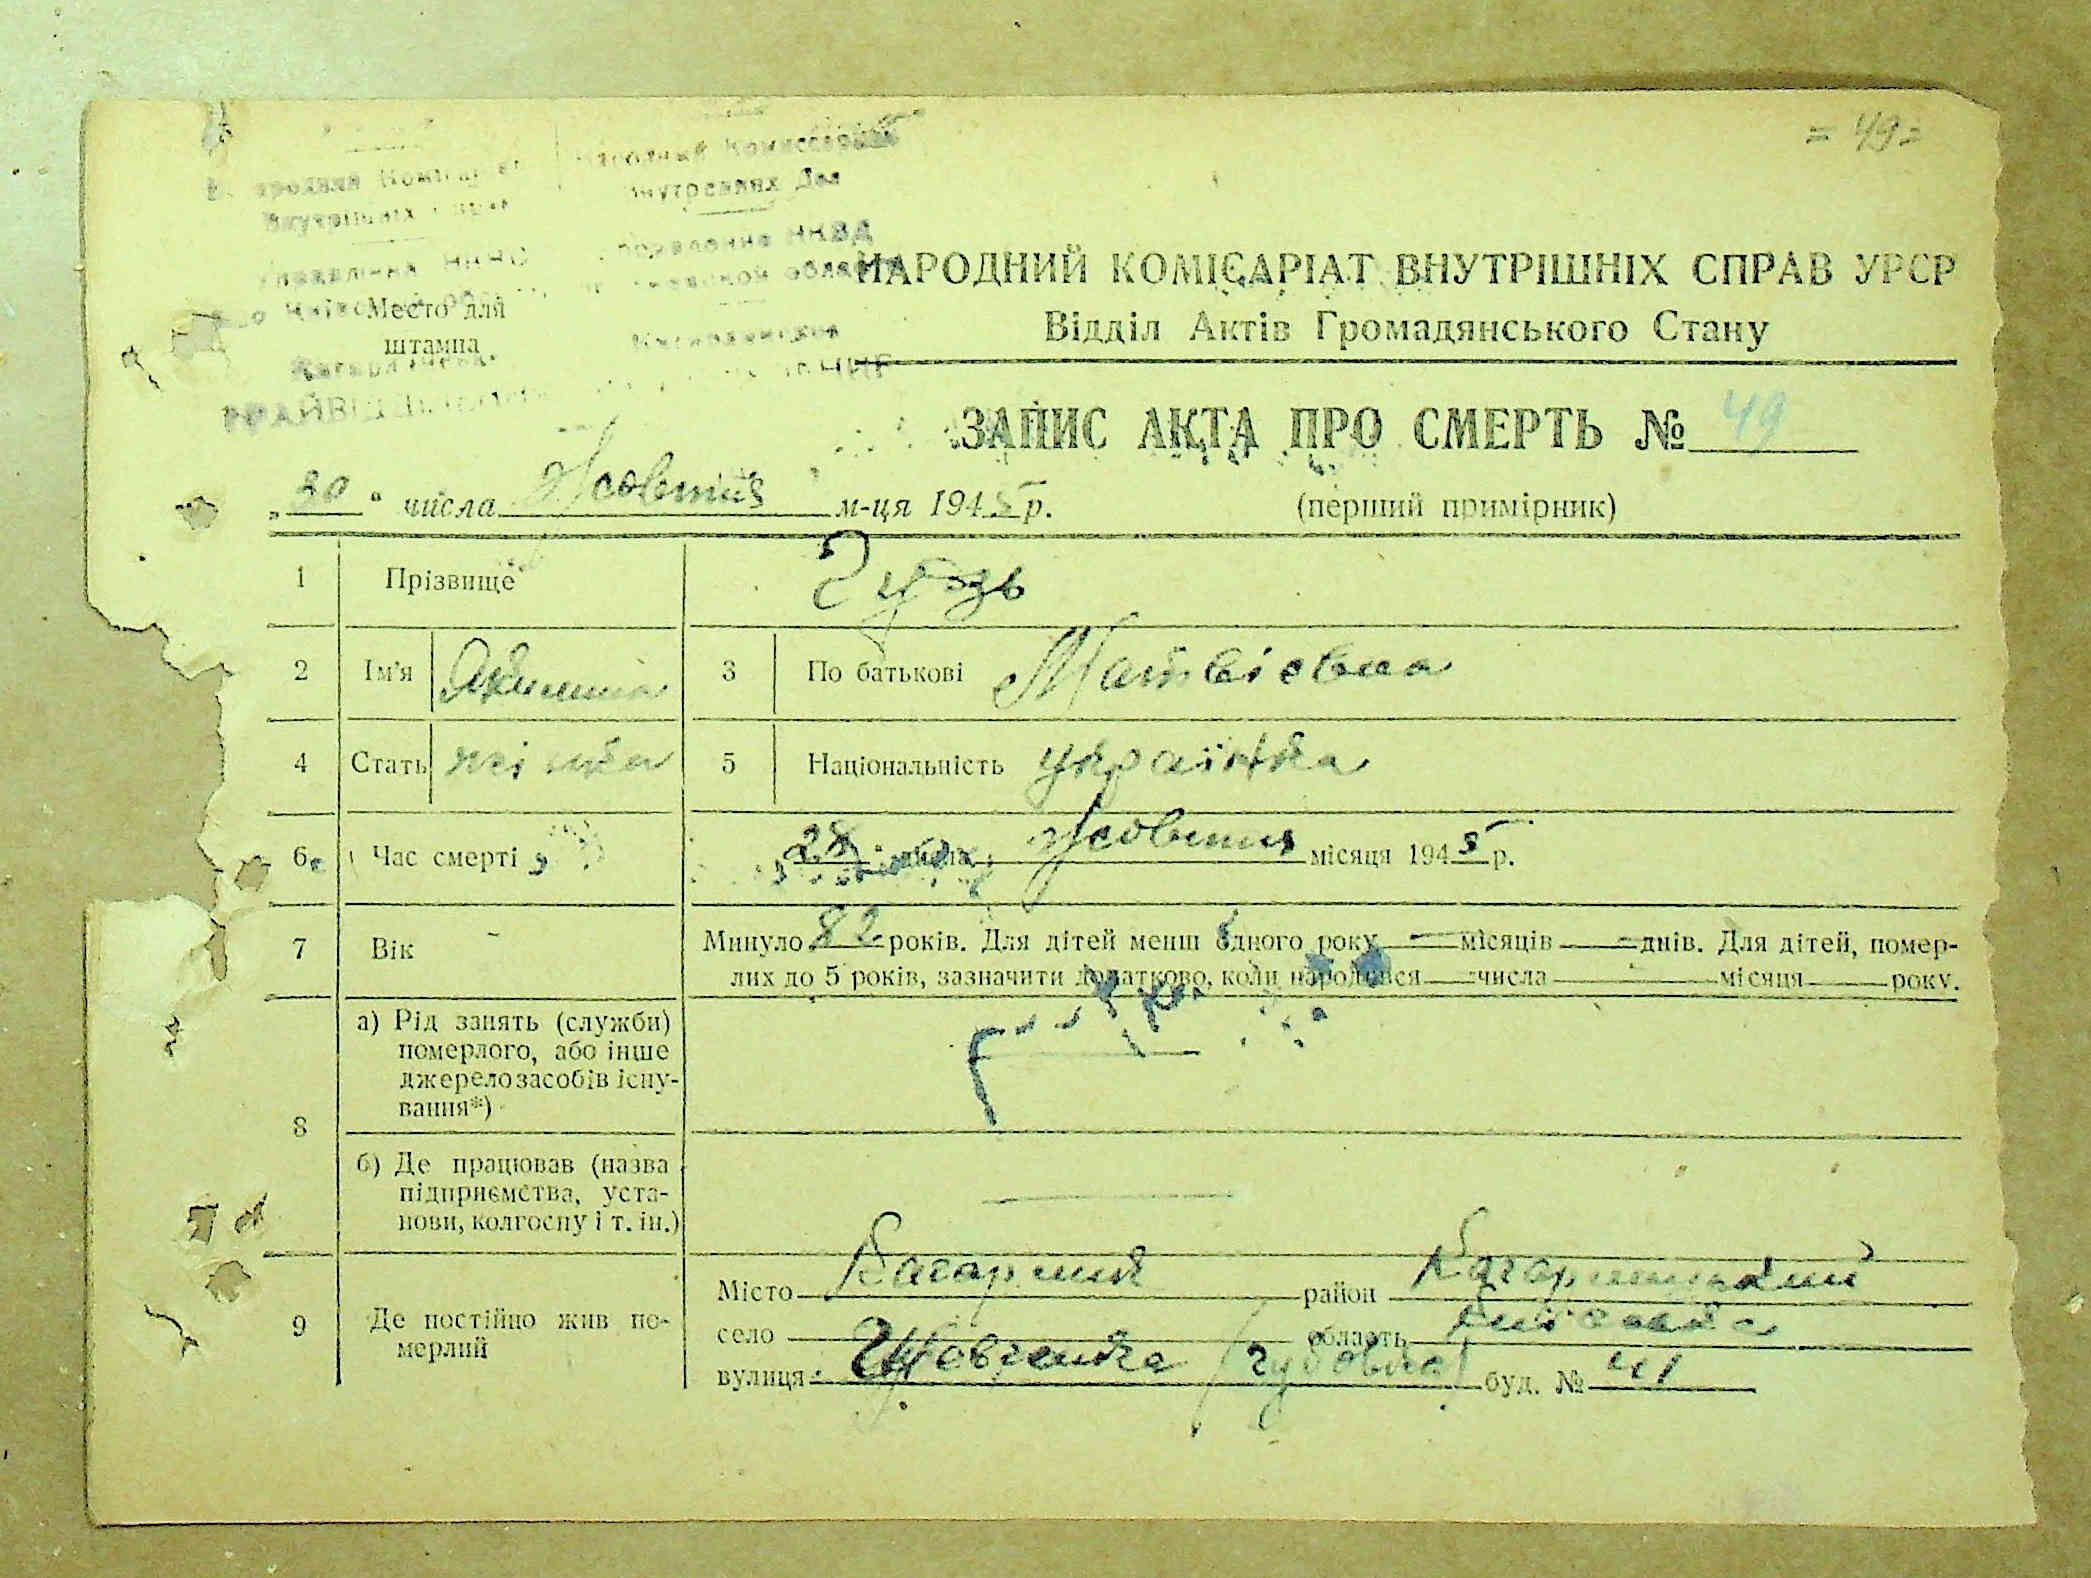 = 49 =
Народный Комиссариат
Внутренних Дел
НАРОДНИЙ КОМІСАРІАТ ВНУТРІШНІХ СПРАВ УРСР
Место для
штампа
Відділ Актів Громадянського Стану
ЗАПИС АКТА ПРО СМЕРТЬ № 49
„30“ числа Жовтня м-ця 1945 р.
(перший примірник)
1 Прізвище
2 Ім'я 3 По батькові Матвієвна
4 Стать жінка 5 Національність українка
6 Час смерті 28 числа Жовтня місяця 1945 р.
7 Вік Минуло 82 років. Для дітей менш одного року — місяців — днів. Для дітей, помер-
лих до 5 років, зазначити додатково, коли народився — числа — місяця — року.
8 а) Рід занять (служби)
померлого, або інше
джерело засобів існу-
вання*)
б) Де працював (назва
підприємства, уста-
нови, колгоспу і т. ін.)
9 Де постійно жив по-
мерлий
Місто Кагарлик район Кагарлицький
село область Київська
вулиця Шевченка буд. № 41